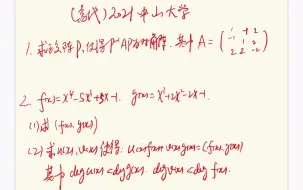 (高代)2021 中山大学
1. 求正交阵P, 使得 P⁻¹AP为对角阵. 其中 A =
2. f(x)=x⁴-5x³+ x-1. g(x)=x³+2x²-2x-1.
(1) 求 (f(x), g(x))
(2) 求 u(x), v(x) 使得: u(x)f(x)+v(x)g(x)=(f(x), g(x))
其中 deg u(x) < deg g(x). deg v(x) < deg f(x).